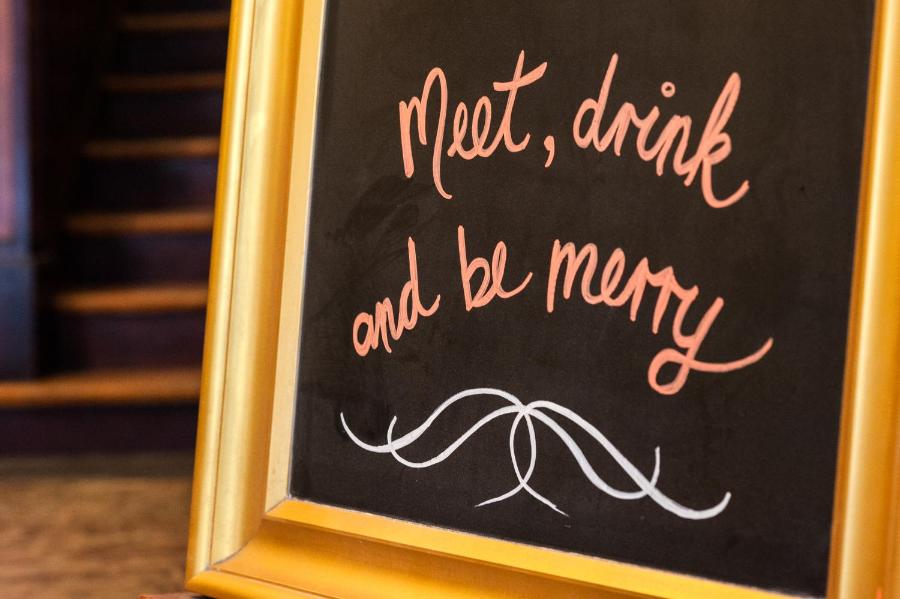 Meet, drink
and be merry